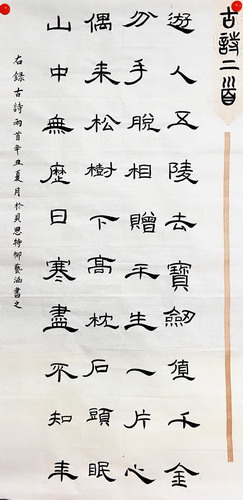 古詩二首
遊人五陵去寶劒值千金
分手脫相贈平生一片心
偶来松樹下高枕石頭眠
山中無歷日寒盡不知年
右録古詩兩首辛丑夏月於貝思特柳藝涵書之